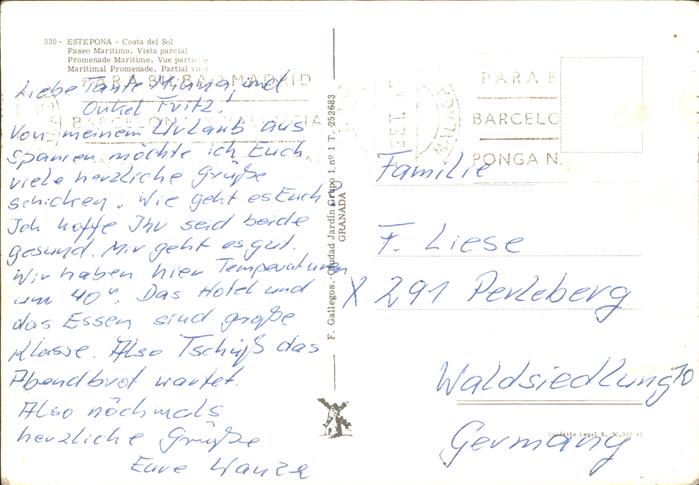 330 - ESTEPONA - Costa del Sol
Paseo Marítimo. Vista parcial
Promenade Maritime. Vue partielle
Maritimal Promenade. Partial view
Liebe Tante Minna, und
Onkel Fritz!
Von meinem Urlaub aus
Spanien möchte ich Euch
viele herzliche Grüße
schicken. Wie geht es Euch?
Ich hoffe Ihr seid beide
gesund. Mir geht es gut.
Wir haben hier Temperaturen
um 40°. Das Hotel und
das Essen sind große
Klasse. Also Tschüß das
Abendbrot wartet.
Also nochmals
herzliche Grüße
Eure
PARA BILBAO MADRID
BARCELONA
F. Gallegos. Ciudad Jardín Grupo 1 nº 1 T. 252683
GRANADA
PARA B
BARCELO
PONGA N
MALAGA
Familie
F. Liese
X 291 Perleberg
Waldsiedlung 70
Germany
Depósito Legal B.